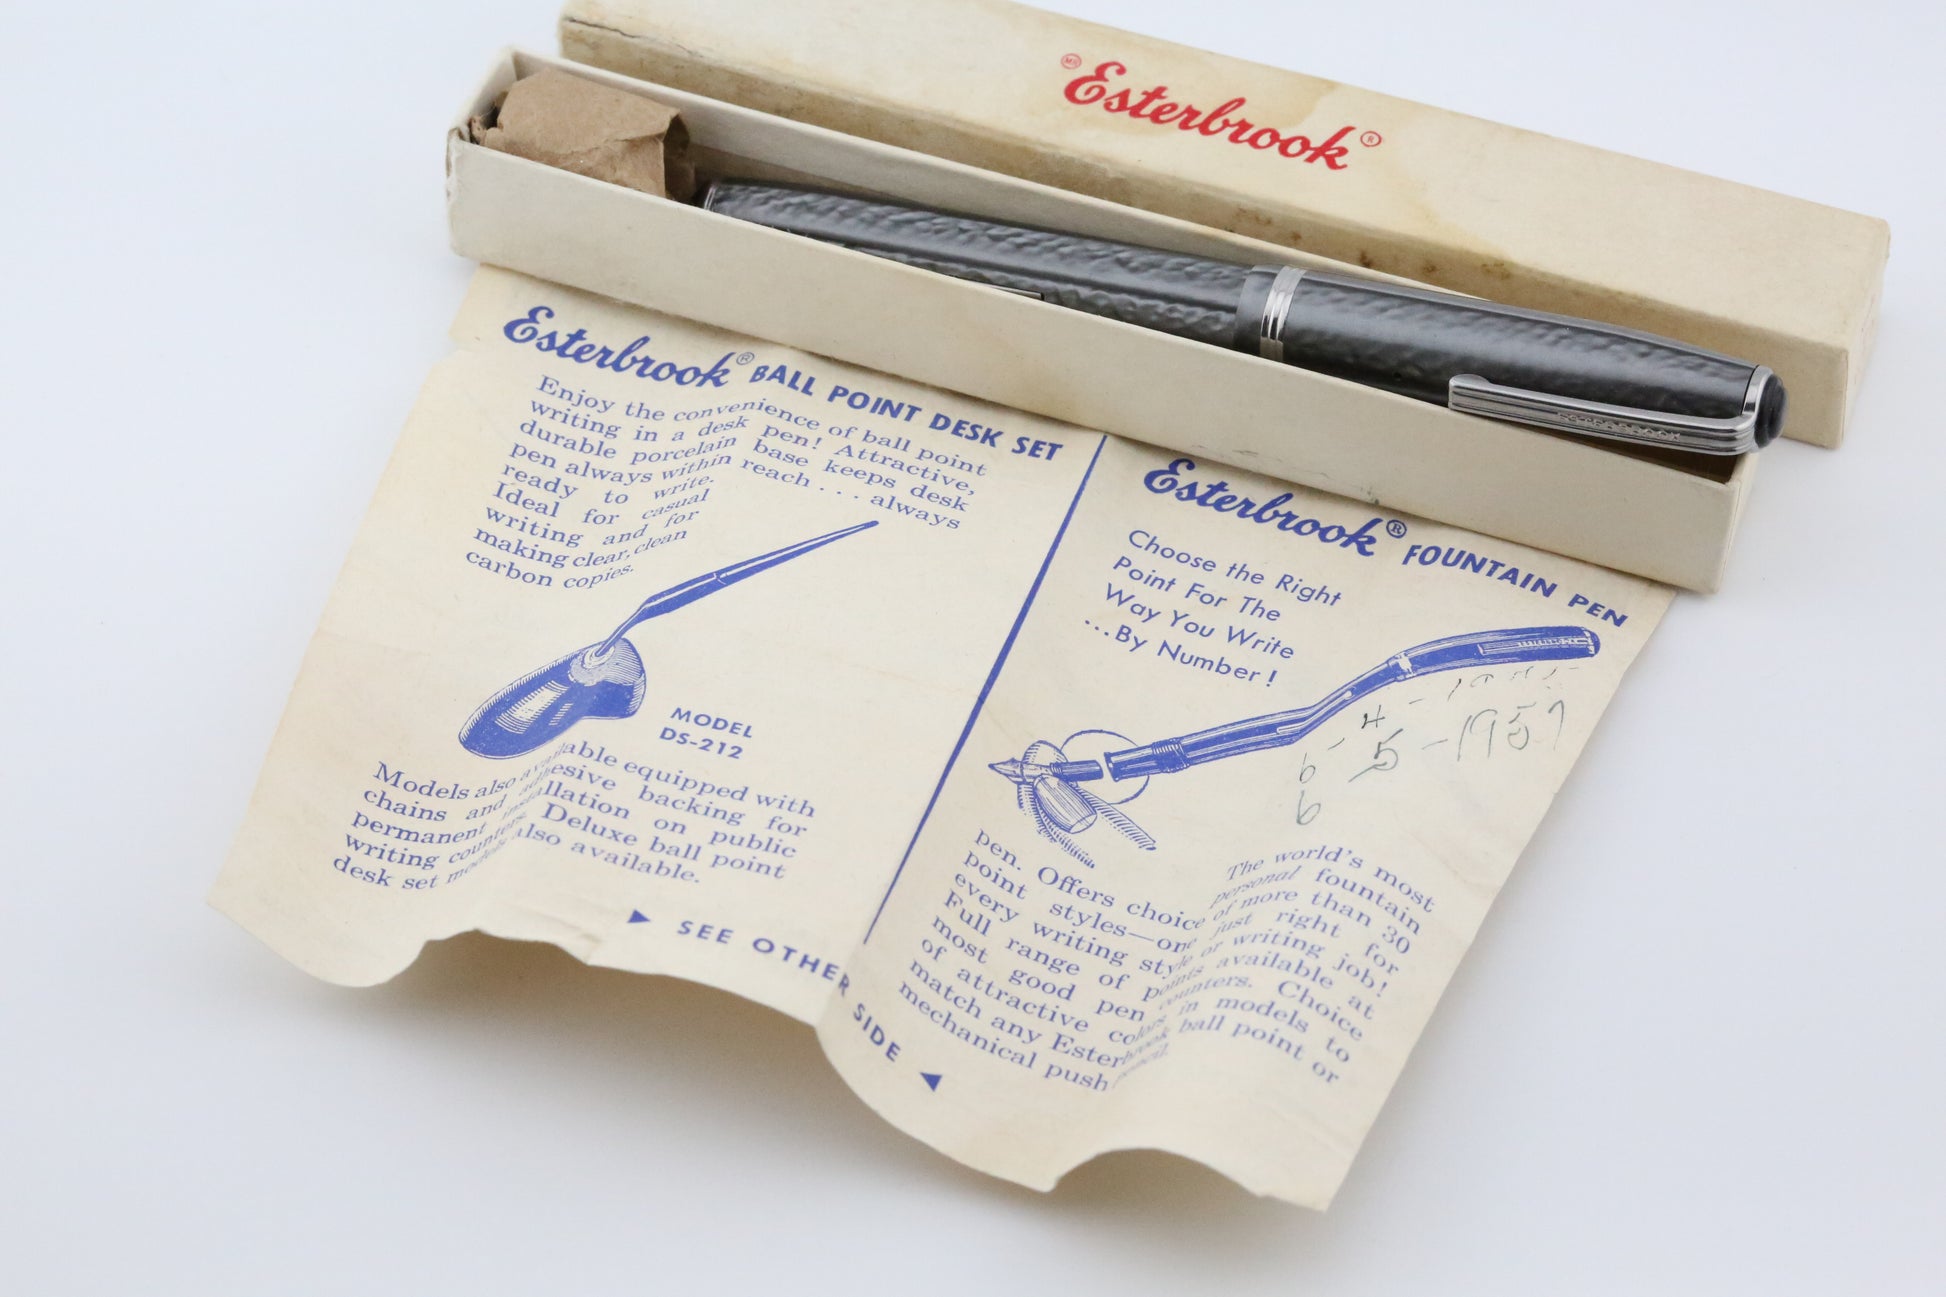 Esterbrook®
ESTERBROOK
Esterbrook® BALL POINT DESK SET
Enjoy the convenience of ball point
writing in a desk pen! Attractive,
durable porcelain base keeps desk
pen always within reach . . . always
ready to write.
Ideal for casual
writing and for
making clear, clean
carbon copies.
MODEL
DS-212
Models also available equipped with
chains and adhesive backing for
permanent installation on public
writing counters. Deluxe ball point
desk set models also available.
Esterbrook® FOUNTAIN PEN
Choose the Right
Point For The
Way You Write
...By Number!
6-4-
6 5-1957
The world's most
personal fountain
pen. Offers choice of more than 30
point styles—one just right for
every writing style or writing job!
Full range of points available at
most good pen counters. Choice
of attractive colors in models to
match any Esterbrook ball point or
mechanical push pencil.
▶ SEE OTHER SIDE ◀